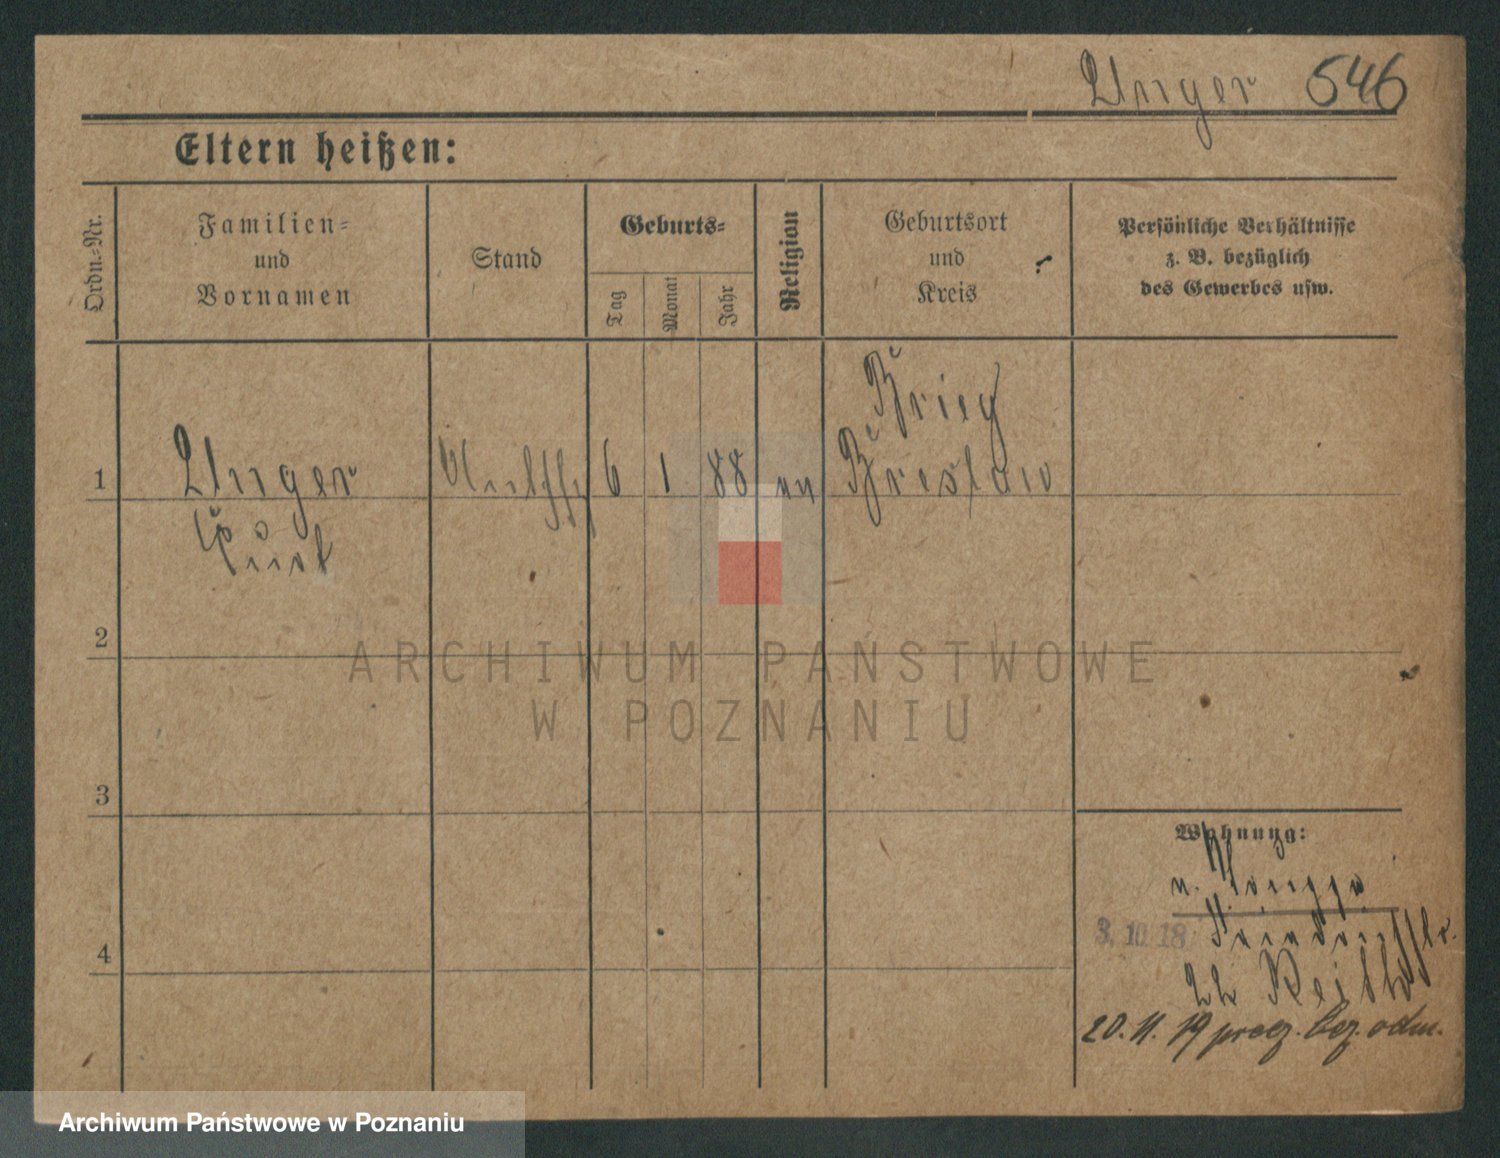 Unger 546
Eltern heißen:
Ordn.-Nr.
Familien-
und
Vornamen
Stand
Geburts-
Tag
Monat
Jahr
Religion
Geburtsort
und
Kreis
Persönliche Verhältnisse
z. B. bezüglich
des Gewerbes usw.
Brieg
1 Unger 6 1 88 ev Breslau
Kurt
2
ARCHIWUM PAŃSTWOWE
W POZNANIU
3
Wohnung:
v.
3. 10. 18
22
4
20. 11. 19 bez. odm.
Archiwum Państwowe w Poznaniu